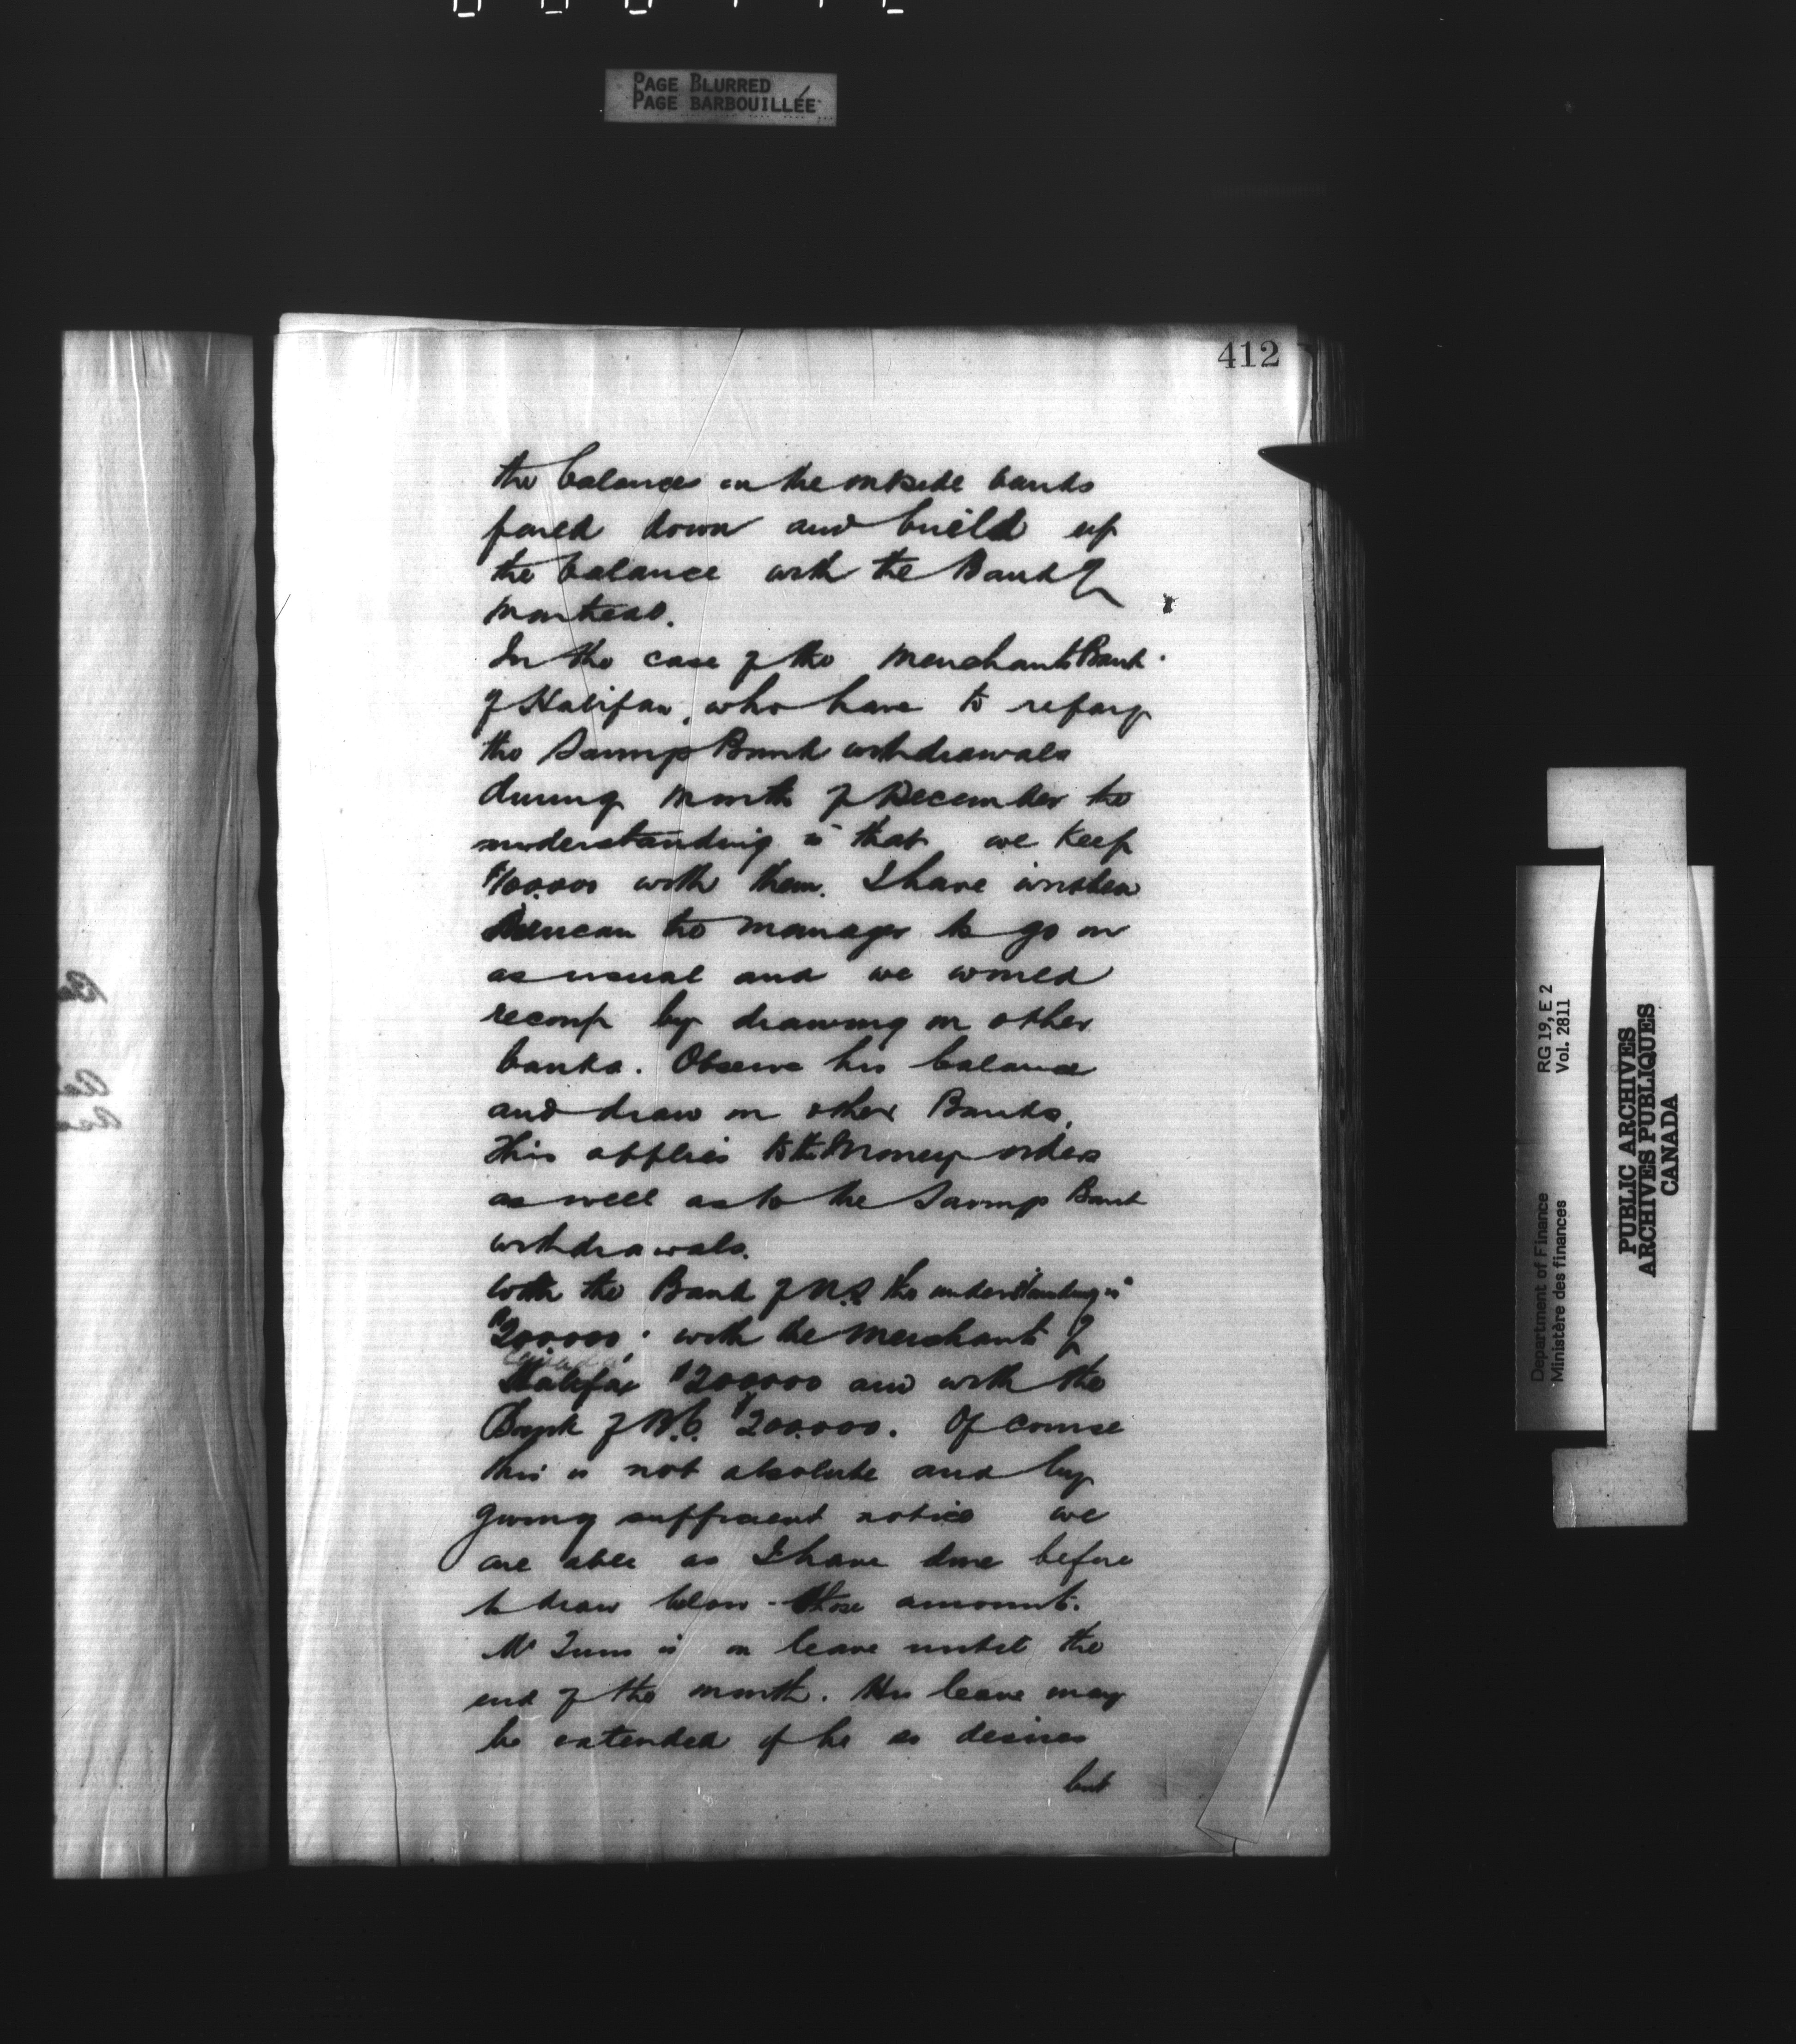 PAGE BLURRED
PAGE BARBOUILLÉE
412
the balances in the outside banks
pared down and build up
the balance with the Bank of
Montreal.
In the case of the Merchants Bank
of Halifax, who have to repay
the Savings Bank withdrawals
during month of December the
understanding is that we keep
$100.000 with them. I have written
Duncan the manager to go on
as usual and we would
recoup by drawing on other
banks. Observe his balance
and draw on other Banks.
This applies to the Money orders
as well as to the Savings Bank
withdrawals.
With the Bank of N.S. the understanding is
$200000. with the Merchants of
Canada
Halifax $200000 and with the
Bank of B.C. $200.000. Of course
this is not absolute and by
giving sufficient notice we
are able as I have done before
to draw below those amounts.
Mr is on leave until the
end of the month. His leave may
be extended if he so desires
but
Department of Finance RG 19, E 2
Ministère des finances Vol. 2811
PUBLIC ARCHIVES
ARCHIVES PUBLIQUES
CANADA